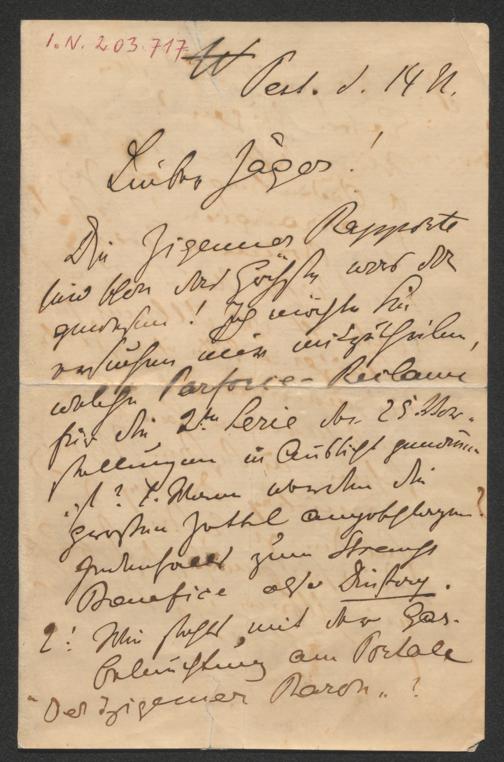 I.N. 203.717
Pest. d. 14 N.
Lieber Jäger!
Die Zigeuner Rapporte
sind das Höchste was da
gewesen! Ich möchte Sie
ersuchen mir mitzutheilen,
welche Parforce-Reclame
für die 2te Serie der 25 Vor-
stellungen in Aussicht genomm
ist? 1. Wann werden die
grossen Zettel angeschlagen?
Jedenfalls zum Strauss
Benefice also Dinstag.
2! Wie steht mit der Gas-
beleuchtung am Portale
"Der Zigeuner Baron"?